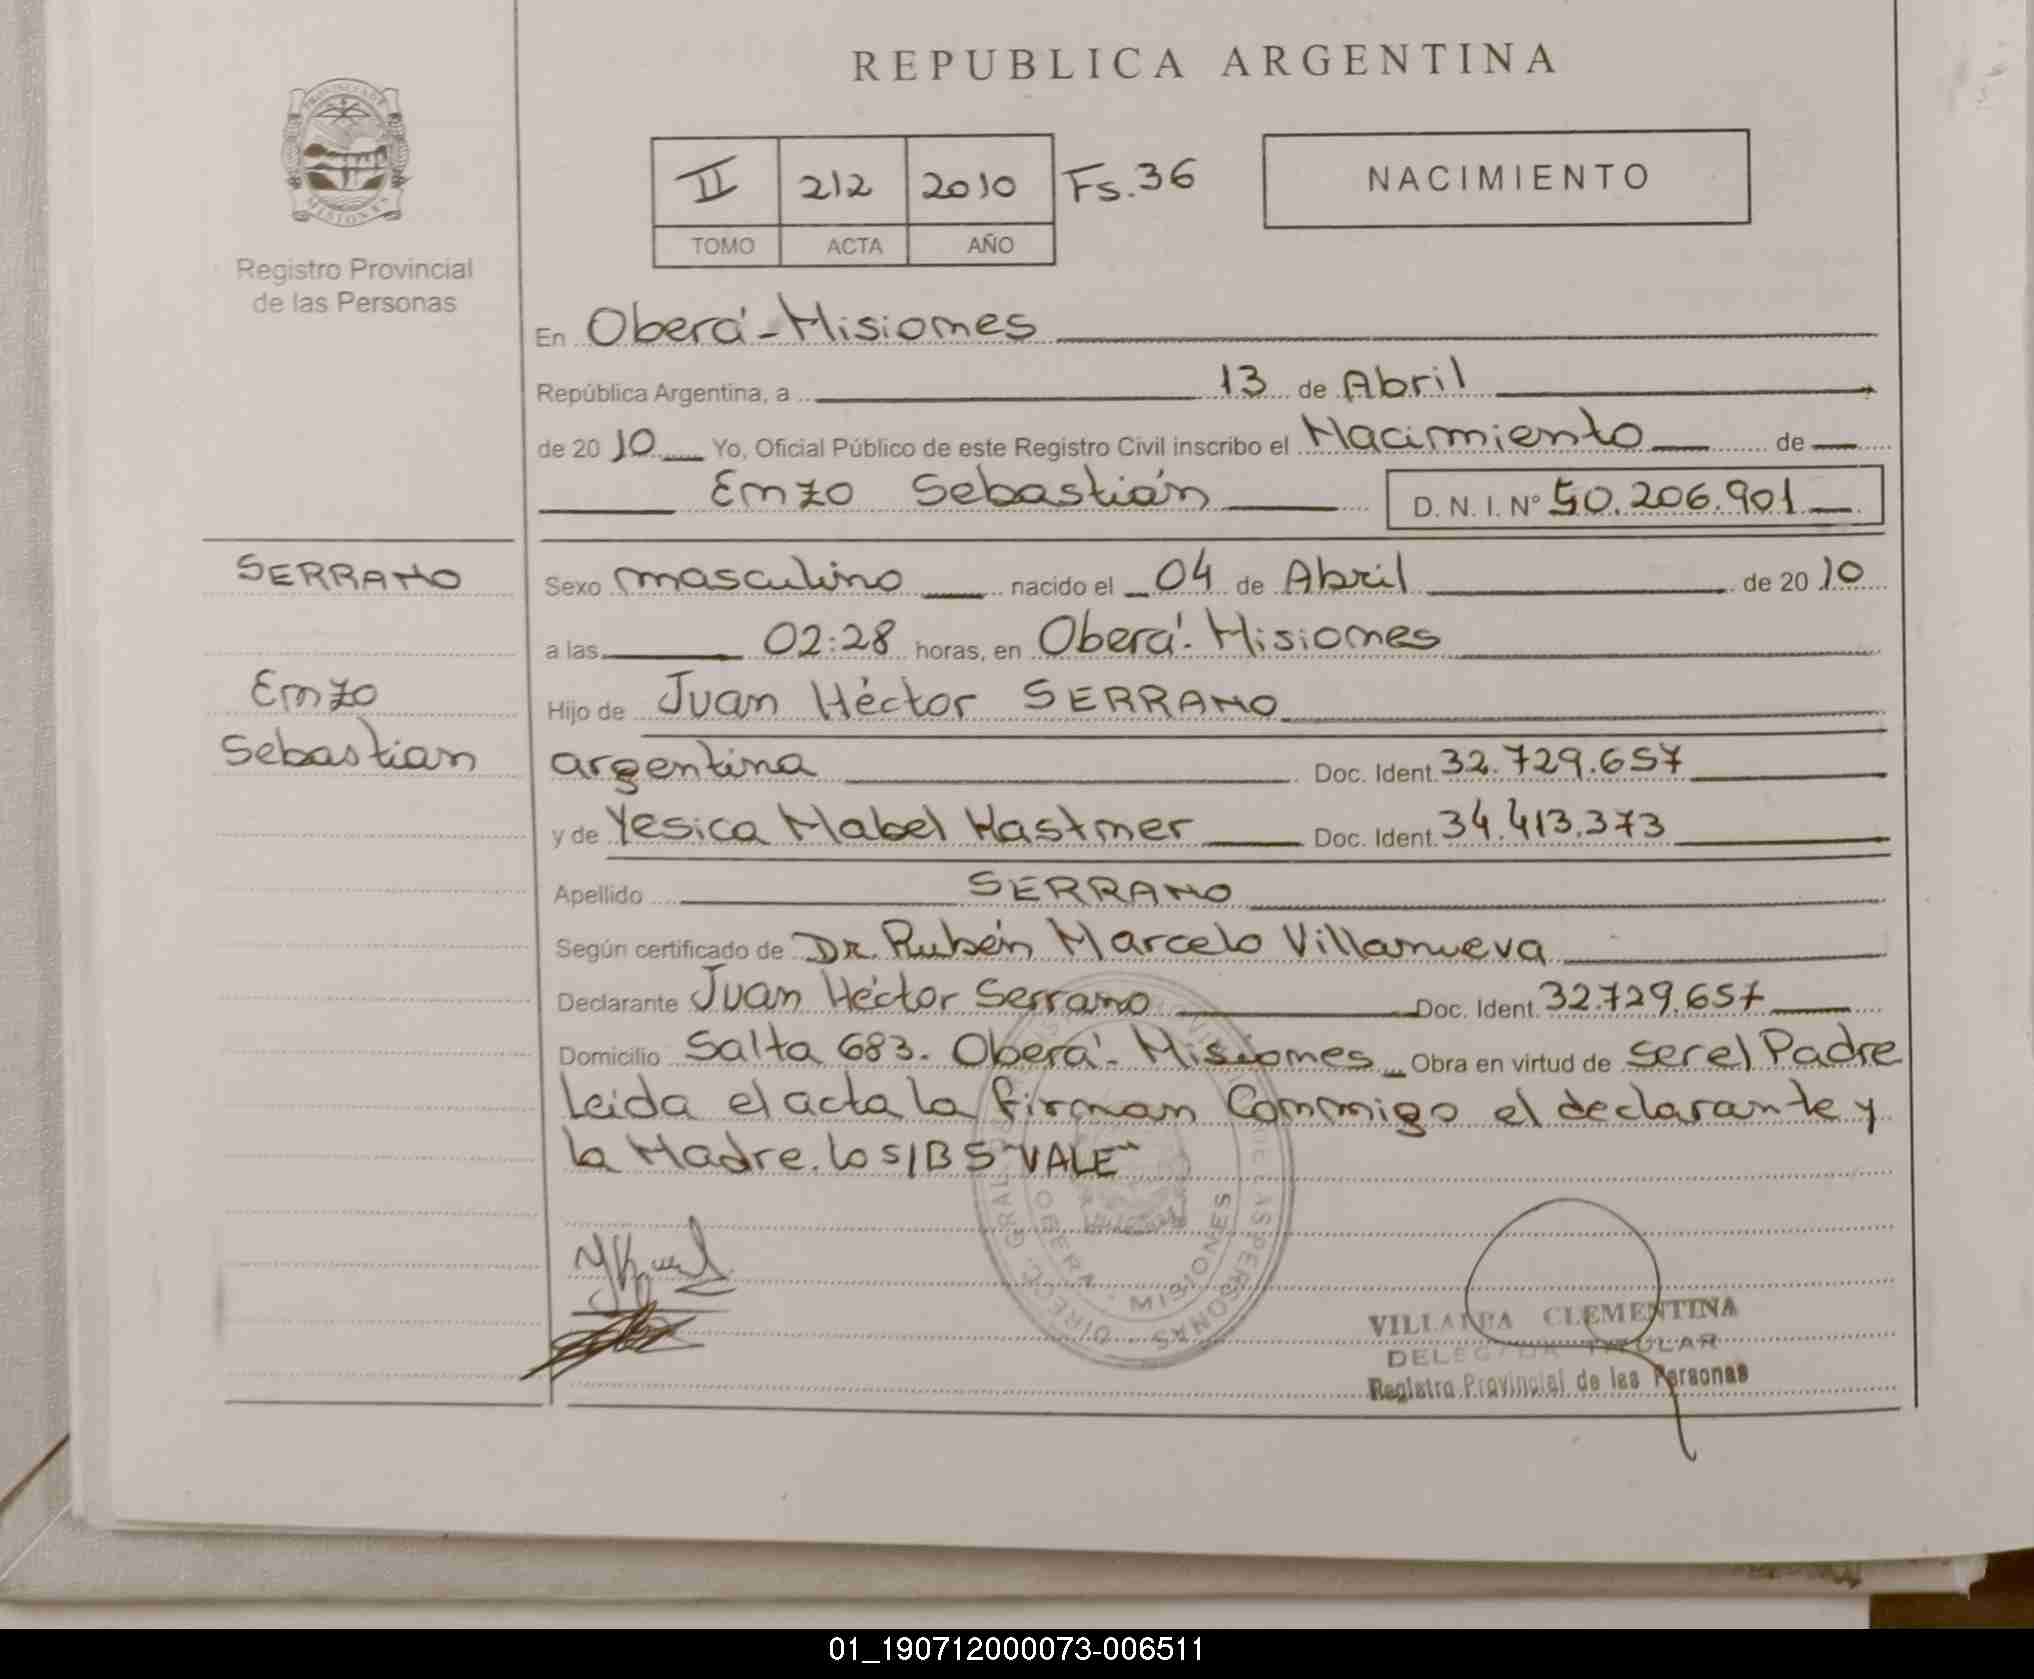 REPUBLICA ARGENTINA
PROVINCIA DE
MISIONES
Registro Provincial
de las Personas
II 212 2010 Fs. 36
TOMO ACTA AÑO
NACIMIENTO
En Oberá - Misiones
República Argentina, a 13 de Abril
de 2010 Yo, Oficial Público de este Registro Civil inscribo el Nacimiento de
Enzo Sebastián D. N. I. Nº 50.206.901
SERRANO
Enzo
Sebastian
Sexo masculino nacido el 04 de Abril de 2010
a las 02:28 horas, en Oberá. Misiones
Hijo de Juan Héctor SERRANO
argentina Doc. Ident. 32.729.657
y de Yesica Mabel Kastner Doc. Ident. 34.413.373
Apellido SERRANO
Según certificado de DR. Rubén Marcelo Villanueva
Declarante Juan Héctor Serrano Doc. Ident. 32.729.657
Domicilio Salta 683. Oberá. Misiones Obra en virtud de ser el Padre
Leida el acta la firman Conmigo el declarante y
la Madre. lo S/B S "VALE"
OBERA - MISIONES
VILLALBA CLEMENTINA
DELEGADA TITULAR
Registro Provincial de las Personas
01_190712000073-006511